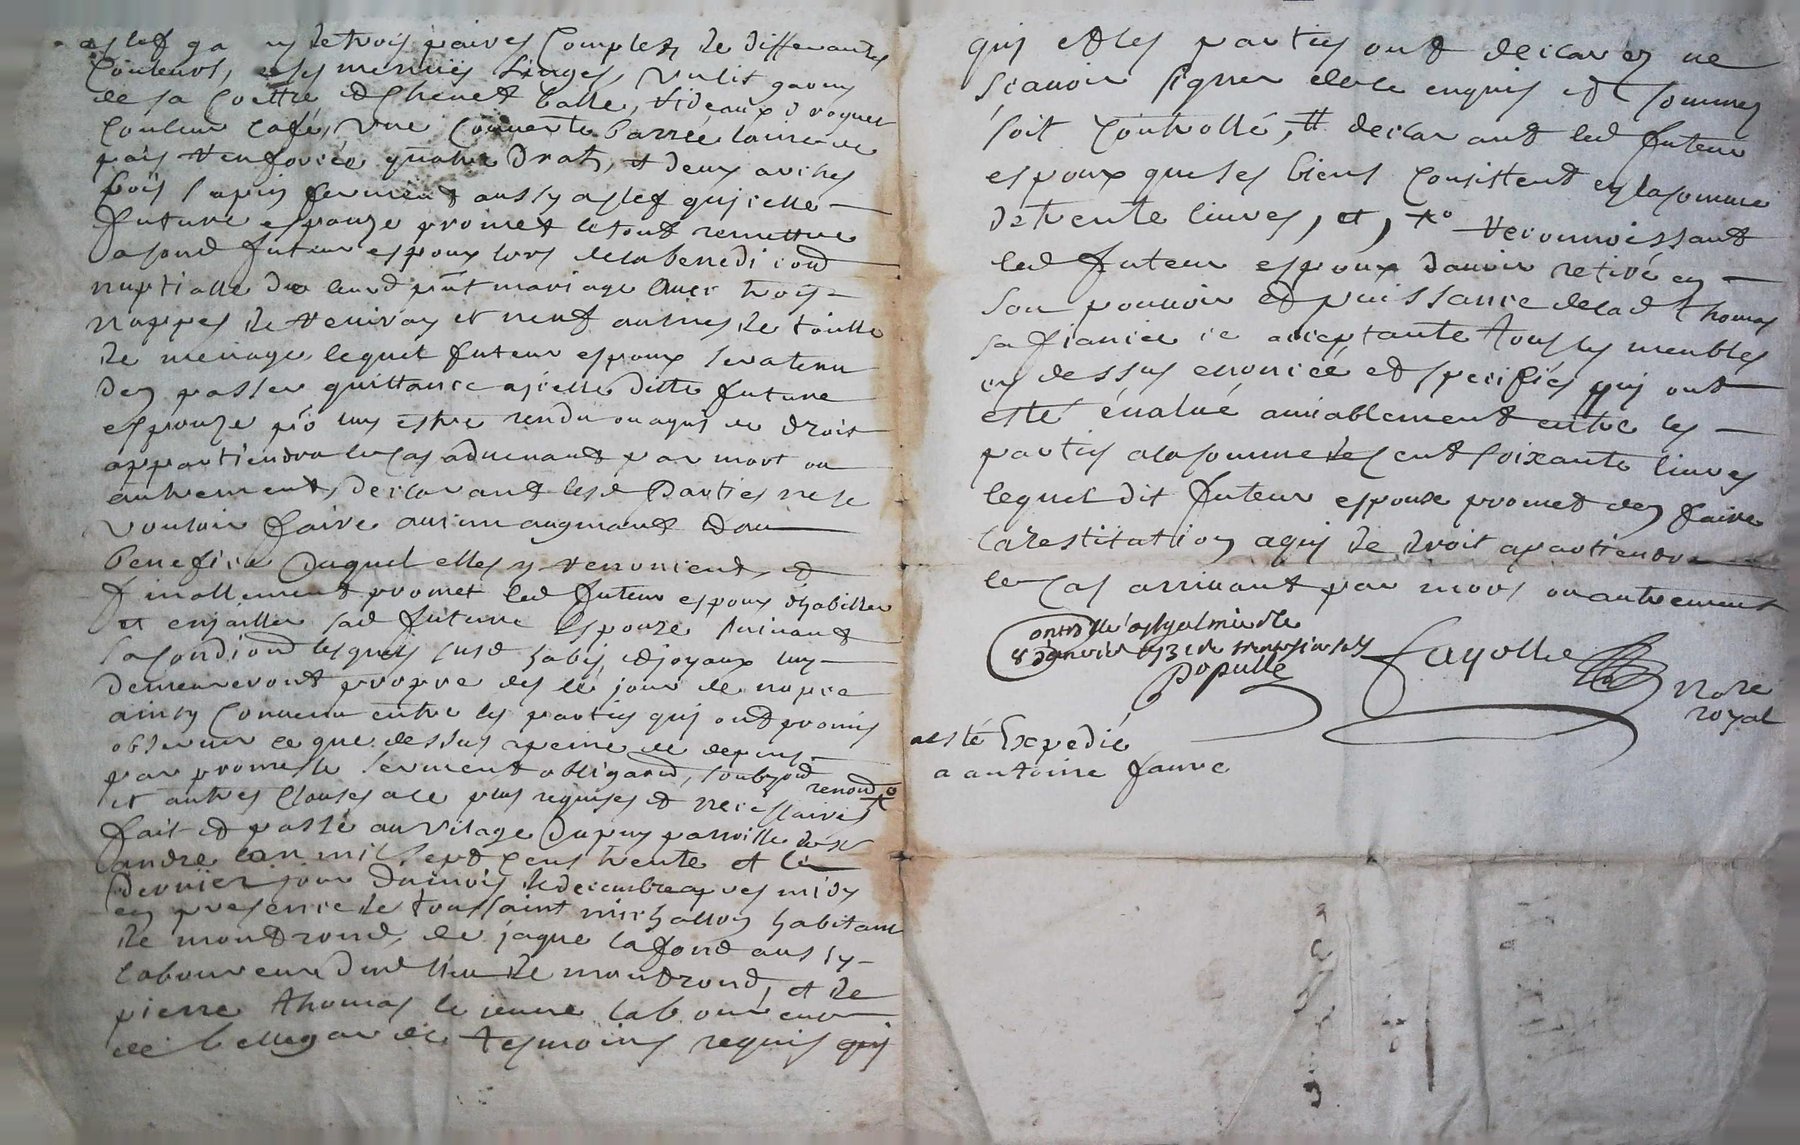 a clef garny de trois paires complets de differantes
couleurs, et ses menuës linges, un lit garny
de sa coettre et chevet balle, rideaux droguet
couleur café, une couverte barrée laine de
païs renforcée quatre drats, et deux arches
boïs sapin fermant aussy a clef qu'icelle
future espouze promet le tout remettre
a sond futeur espoux lors de la benediond
nuptialle du leurd pnt mariage avec trois
nappes de venivay et neuf aulnes de toille
de menage, lequel futeur espoux sera tenu
den passer quittance a jcelle ditte future
espouze po luy estre rendu ou a quj de droit
appartiendra le cas advenant par mort ou
autrement, declarant lesd parties ne se
vouloir faire aucun augmant dou
benefice duquel elles y renoncent, et
finallement promet led futeur espoux dhabiller
et enjailler sad future espouze suivant
sa condiond lesquels susd habis et joyaux luy
demeureront propre des le jour de nopce
ainsy convenu entre les parties quj ont promis
observer ce que dessus a peine de depens
par promesse serment obligaond, soubzond renond
et autres clauses a ce plus requises et necessaires
fait et passé au vilage Dupuy parroisse de st
andre l'an mil sept cens trente et le
dernier jour du mois de decembre apres midy
en presence de toussaint michallon habitant
de montrond, de jaque lafond aussy
laboureur dud lieu de montrond, et de
pierre thomas le jeune laboureur
de bellegarde tesmoins requis
quj et les parties ont declarez ne
scavoir signer de ce enquis et sommes
soit controllé, # declarant led futeur
espoux que ses biens consistent en la somme
de trente livres, et, xo reconnoissant
led futeur espoux davoir retiré en
son pouvoir et puissance de lad thomas
sa fiancee ce acceptante tous les meubles
cy dessus enoncé et specifiés quj ont
esté évalué amiablement entre les
parties a la somme de cent soixante livres
lequel dit futeur espoux promet den faire
la restitation a quj de droit apartiendra
le cas arrivant par mort ou autrement
Controllé a st galmier le
8 janvier 1731
Populle
Fayolle Nore
royal
a esté Expedié
a antoine faure